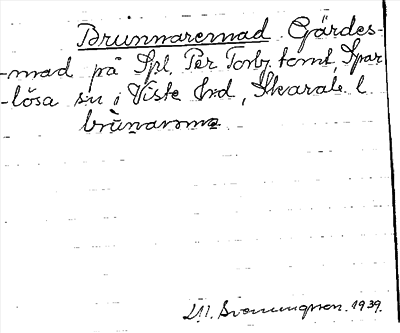 Brunnaremad Gärdes-
-mad på Spl. Per Torbj. tomt, Spar
-lösa sn i Viste hrd, Skarab. l.
brùnarama
M. Svenungsson. 1939.